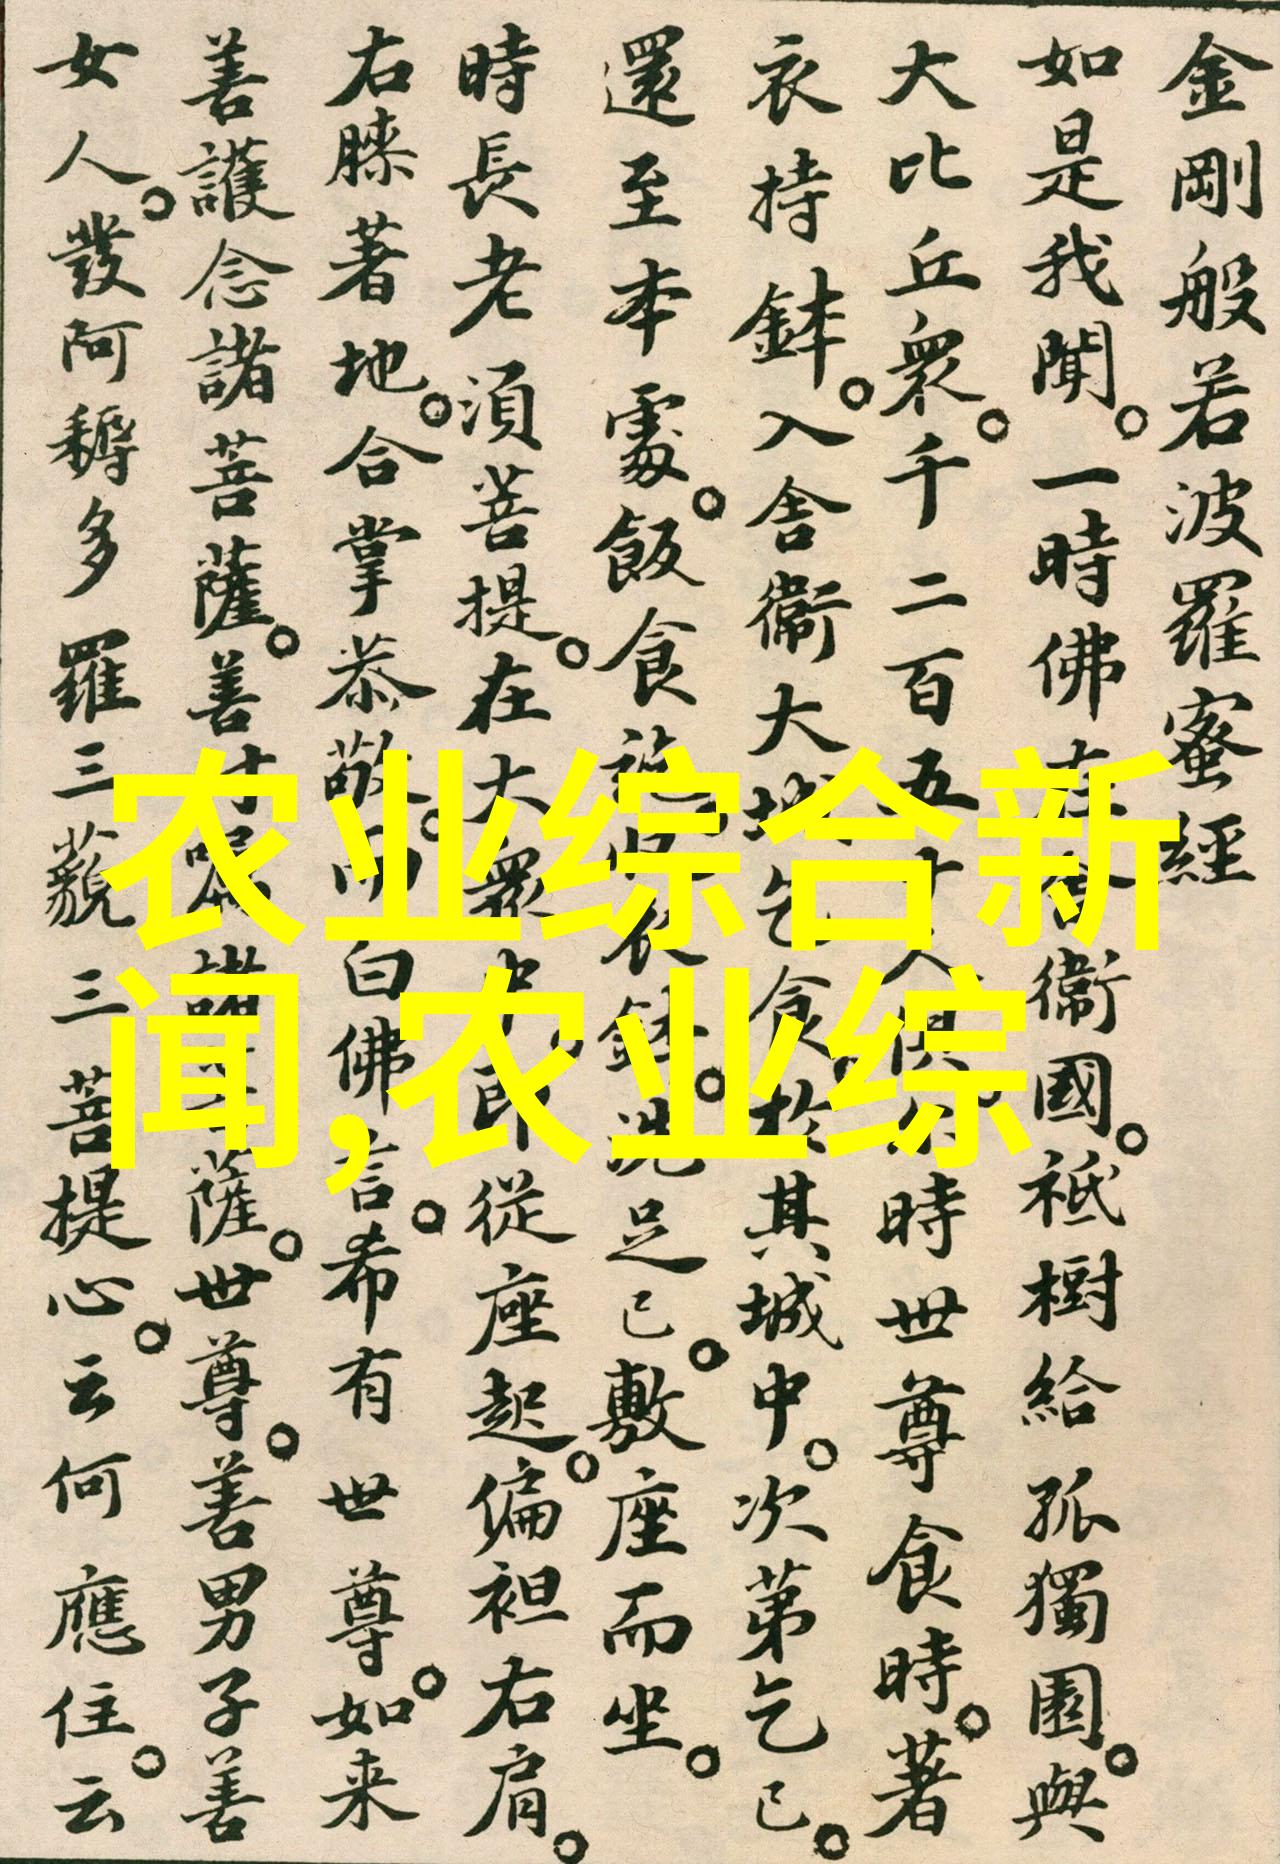 金剛般若波羅蜜經
如是我聞。一時佛在舍衛國。祇樹給孤獨園。與
大比丘衆。千二百五十人俱。尒時世尊食時。著
衣持鉢。入舍衛大城乞食。於其城中。次第乞已。
還至本處。飯食訖。收衣鉢。洗足已。敷座而坐。
時長老須菩提。在大衆中。即從座起。偏袒右肩。
右膝著地。合掌恭敬。而白佛言。希有世尊。如来
善護念諸菩薩。善付囑諸菩薩。世尊。善男子善
女人。發阿耨多羅三藐三菩提心。云何應住。云
农业综合新
闻,农业综